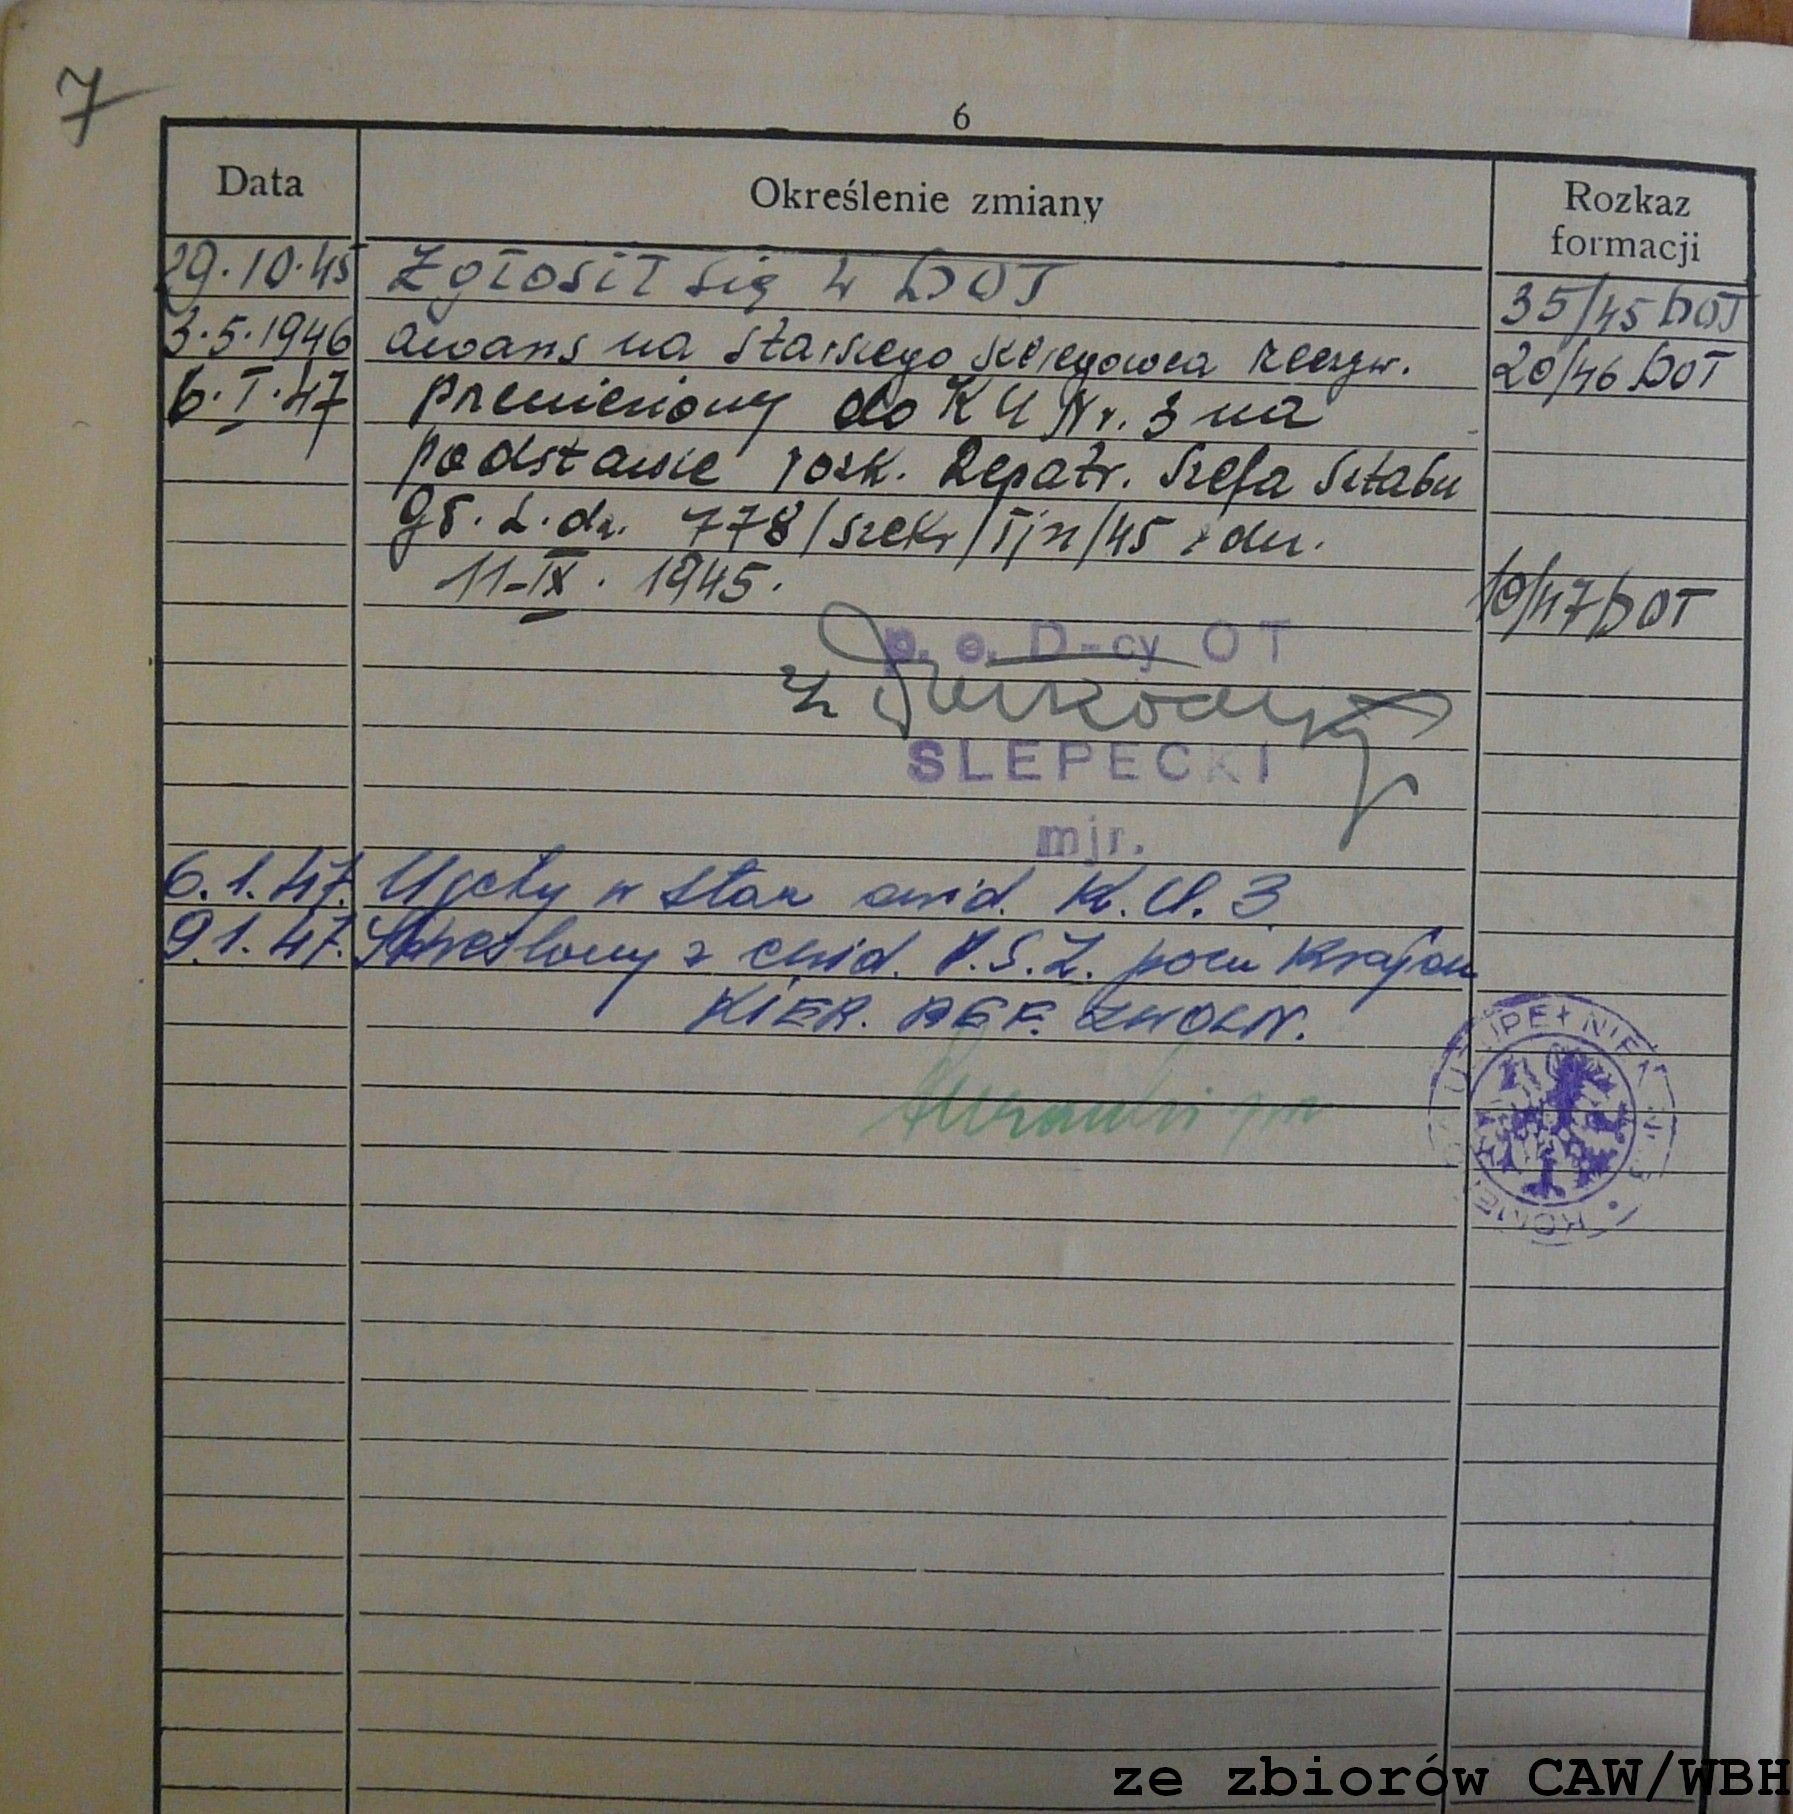 7
6
Data Określenie zmiany Rozkaz formacji
29.10.45 Zgłosił się w DOT 35/45 DOT
3.5.1946 awans na starszego szeregowca rzeczyw. 20/46 DOT
6.I.47 przeniesiony do KU Nr. 3 na
podstawie rozk. Repatr. Szefa Sztabu
Gł. L.dz. 778/szekr/Tjn/45 z dn.
11-IX. 1945. 10/47/DOT
p. o. D-cy OT
z
SLEPECKI
mjr.
6.1.47. Ujęty w stan ewid. K.U. 3
9.1.47. Skreślony z ewid. P.S.Z. poza Krajem
KIER. REF. ZWOLN.
UZUPEŁNIEŃ
ze zbiorów CAW/WBH